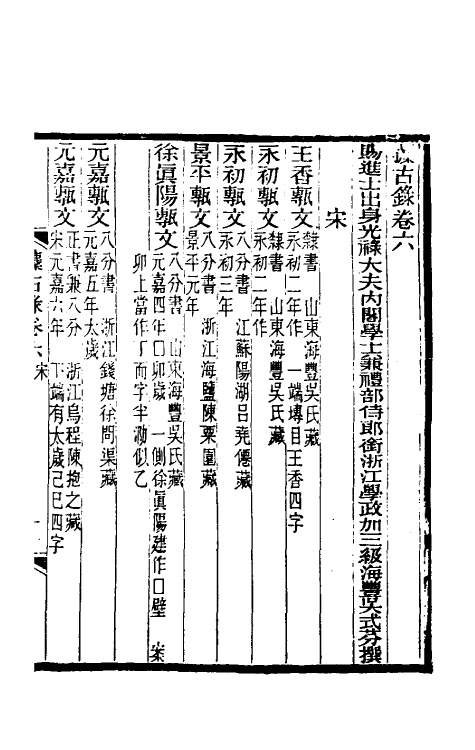 攈古錄卷六
賜進士出身光祿大夫內閣學士兼禮部侍郎銜浙江學政加三級海豐吳式芬撰
宋
王香甎文 隸書 山東海豐吳氏藏
永初二年作 一端塼目王香四字
永初甎文 隸書 山東海豐吳氏藏
永初二年作
永初甎文 八分書 江蘇陽湖呂堯僊藏
永初三年
景平甎文 八分書 浙江海鹽陳粟園藏
景平元年
徐眞陽甎文 八分書 山東海豐吳氏藏
元嘉四年口卯歲 一側徐眞陽建作口壁 案
卯上當作丁而字半泐似乙
元嘉甎文 八分書 浙江錢塘徐問渠藏
元嘉五年太歲
元嘉甎文 正書兼八分 浙江烏程陳抱之藏
宋元嘉六年 下端有太歲己巳四字
攈古錄卷六 宋 一